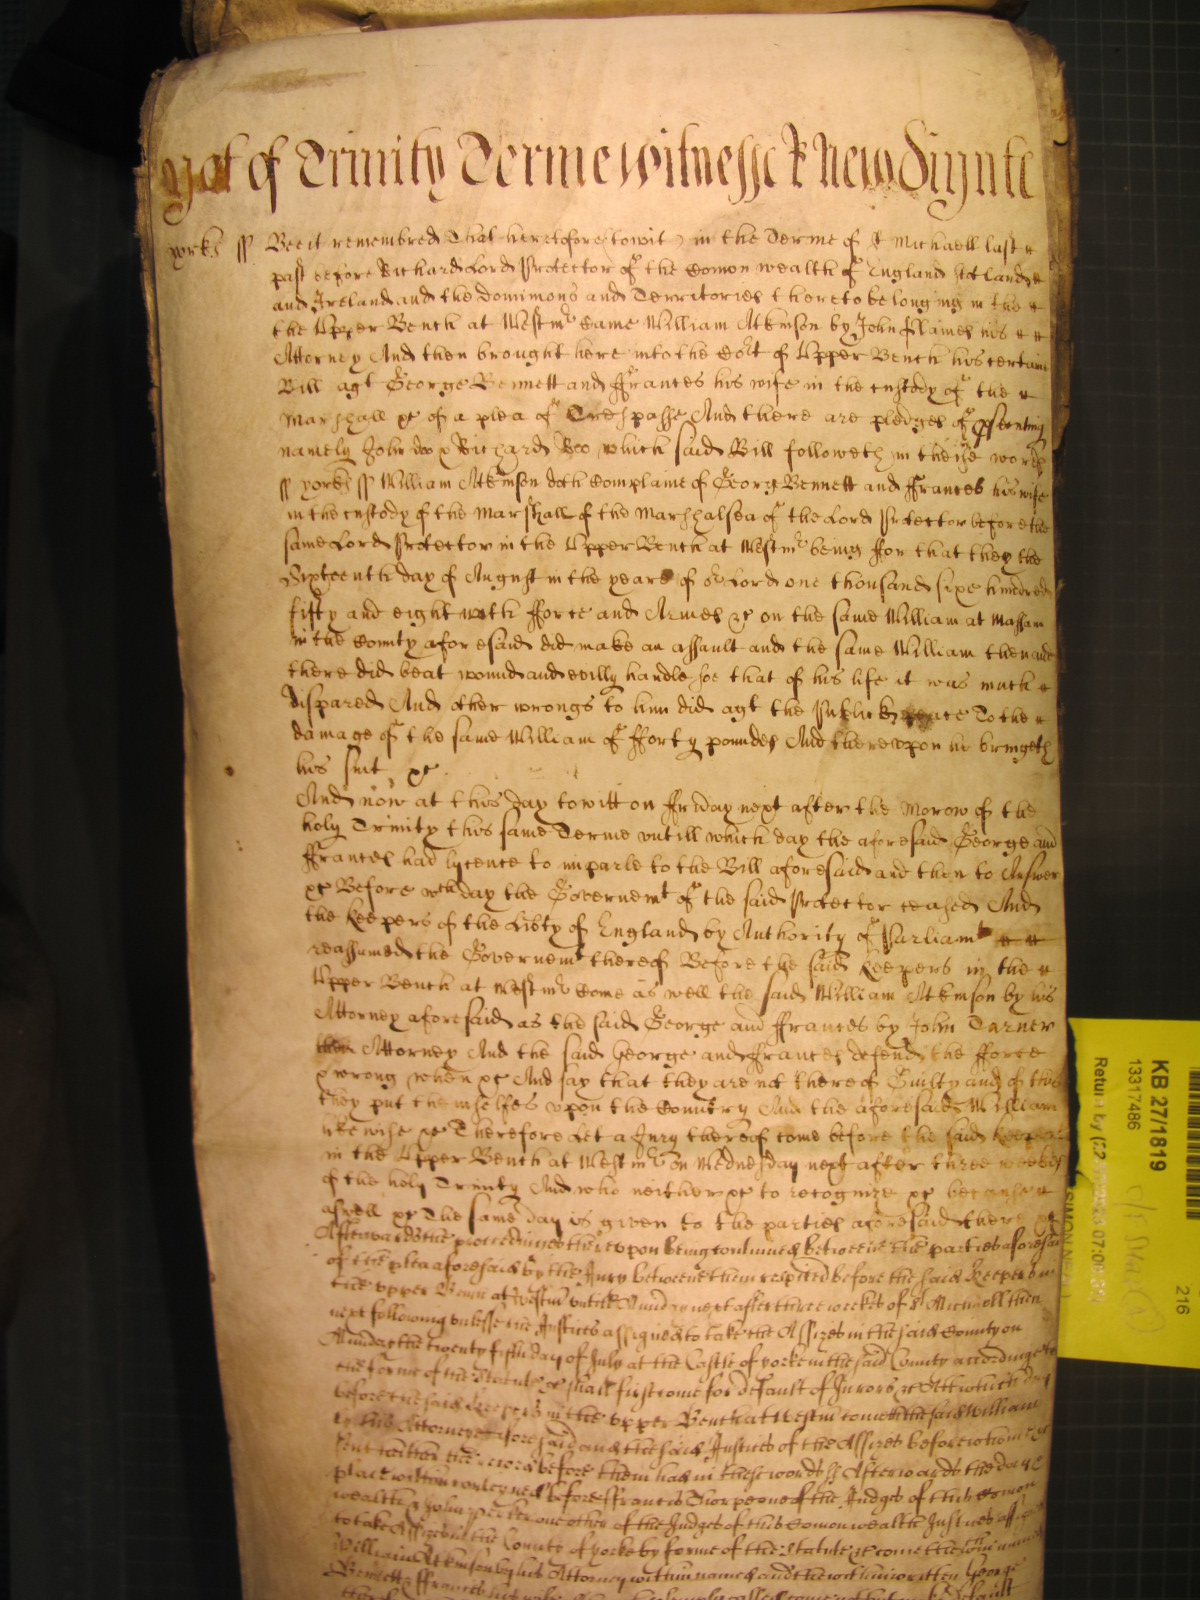 yet of Trinity Terme witnesse R Newdigate
yorks ss Bee it remembred That heretofore towit in the Terme of St Michaell last
past before Richard Lord Protector of the Comon wealth of England Scotland
and Ireland and the Dominions and Territories thereto belonging in the
the Upper Bench at Westmr Came William Atkinson by John Flames his
Attorney And then brought here into the Cort of Upper Bench his certain
Bill agt George Bennett and ffrances his wife in the custody of the
Marshall &c of a plea of Trespasse And there are pledges of psecuting
namely John doo & Richard Roo which said Bill followeth in these words
ss yorks ss William Atkinson doth Complaine of Georg Bennett and ffrances his wife
in the custody of the Marshall of the Marshalsea of the Lord Protector before the
same Lord Protector in the Upper Bench at Westmr being ffor that they the
Sixteenth day of August in the yeare of or Lord one thousand sixe hundred
fifty and eight with fforce and Armes &c on the same William at Massam
in the County aforesaid did make an assault and the same William then and
there did beat wound and evilly handle soe that of his life it was much
dispared And other wrongs to him did agt the Publick peace To the
damage of the same William of fforty poundes And thereupon he bringeth
his suit &c
And now at this day towitt on ffriday next after the Morow of the
holy Trinity this same Terme untill which day the aforesaid George and
ffrances had lycence to imparle to the Bill aforesaid and then to Answer
&c Before wch day the Governemt of the said Protector ceased And
the Keepers of the Libty of England by Authority of Parliamt
reassumed the Governemt thereof Before the said Keepers in the
Upper Bench at Westmr Come as well the said William Atkinson by his
Attorney aforesaid as the said George and ffrances by John Turner
their Attorney And the said George and ffrances defend the fforce
& wrong when &c And say that they are not thereof Guilty and of this
they put themselfes upon the Country And the aforesaid William
likewise &c Therefore Let a Jury thereof come before the said Keepers
in the Upper Bench at Westmr on Wednesday next after three weekes
of the holy Trinity And who neither &c to recognize &c because
aswell &c The same day is given to the parties aforesaid there &c
Afterwards the proceedinges thereupon being continued betweene the parties aforesaid
of the plea aforesaid by the Jury betweene them respited before the said Keepers in
the upper Bench at Westmr untill Munday next after three weekes of St Michaell then
next following unlesse the Justices assigned to take the Assizes in the said County on
Munday the twenty fifth day of July at the Castle of yorke in the said County according to
the forme of the Statute &c shall first come for default of Jurors &c Att which day
before the said Keepers in the upper Bench at Westmr cometh the said William
by his Attorney aforesaid and the said Justices of the Assizes before whome &c
sent hither their record before them had in these words ss Afterwards the day &
place within conteyned before ffrancis Thorpe one of the Judges of this Comon
wealth & John Parker one other of the Judges of this Comon wealth Justices assigned
to take Assizes in the County of yorke by forme of the Statute &c come the within named
William Atkinson by his Attorney within named and the within written George
Bennett & ffrances his wife
KB 27/1819
13317486
216